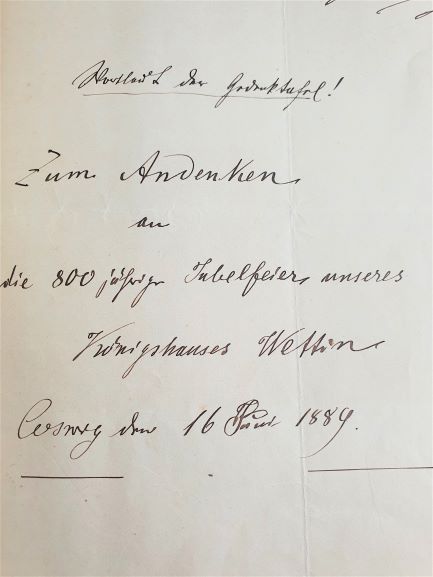 Wortlaut der Gedenktafel!
Zum Andenken
an
die 800 jährige Jubelfeier unseres
Königshauses Wettin
Coswig den 16 Juni 1889.